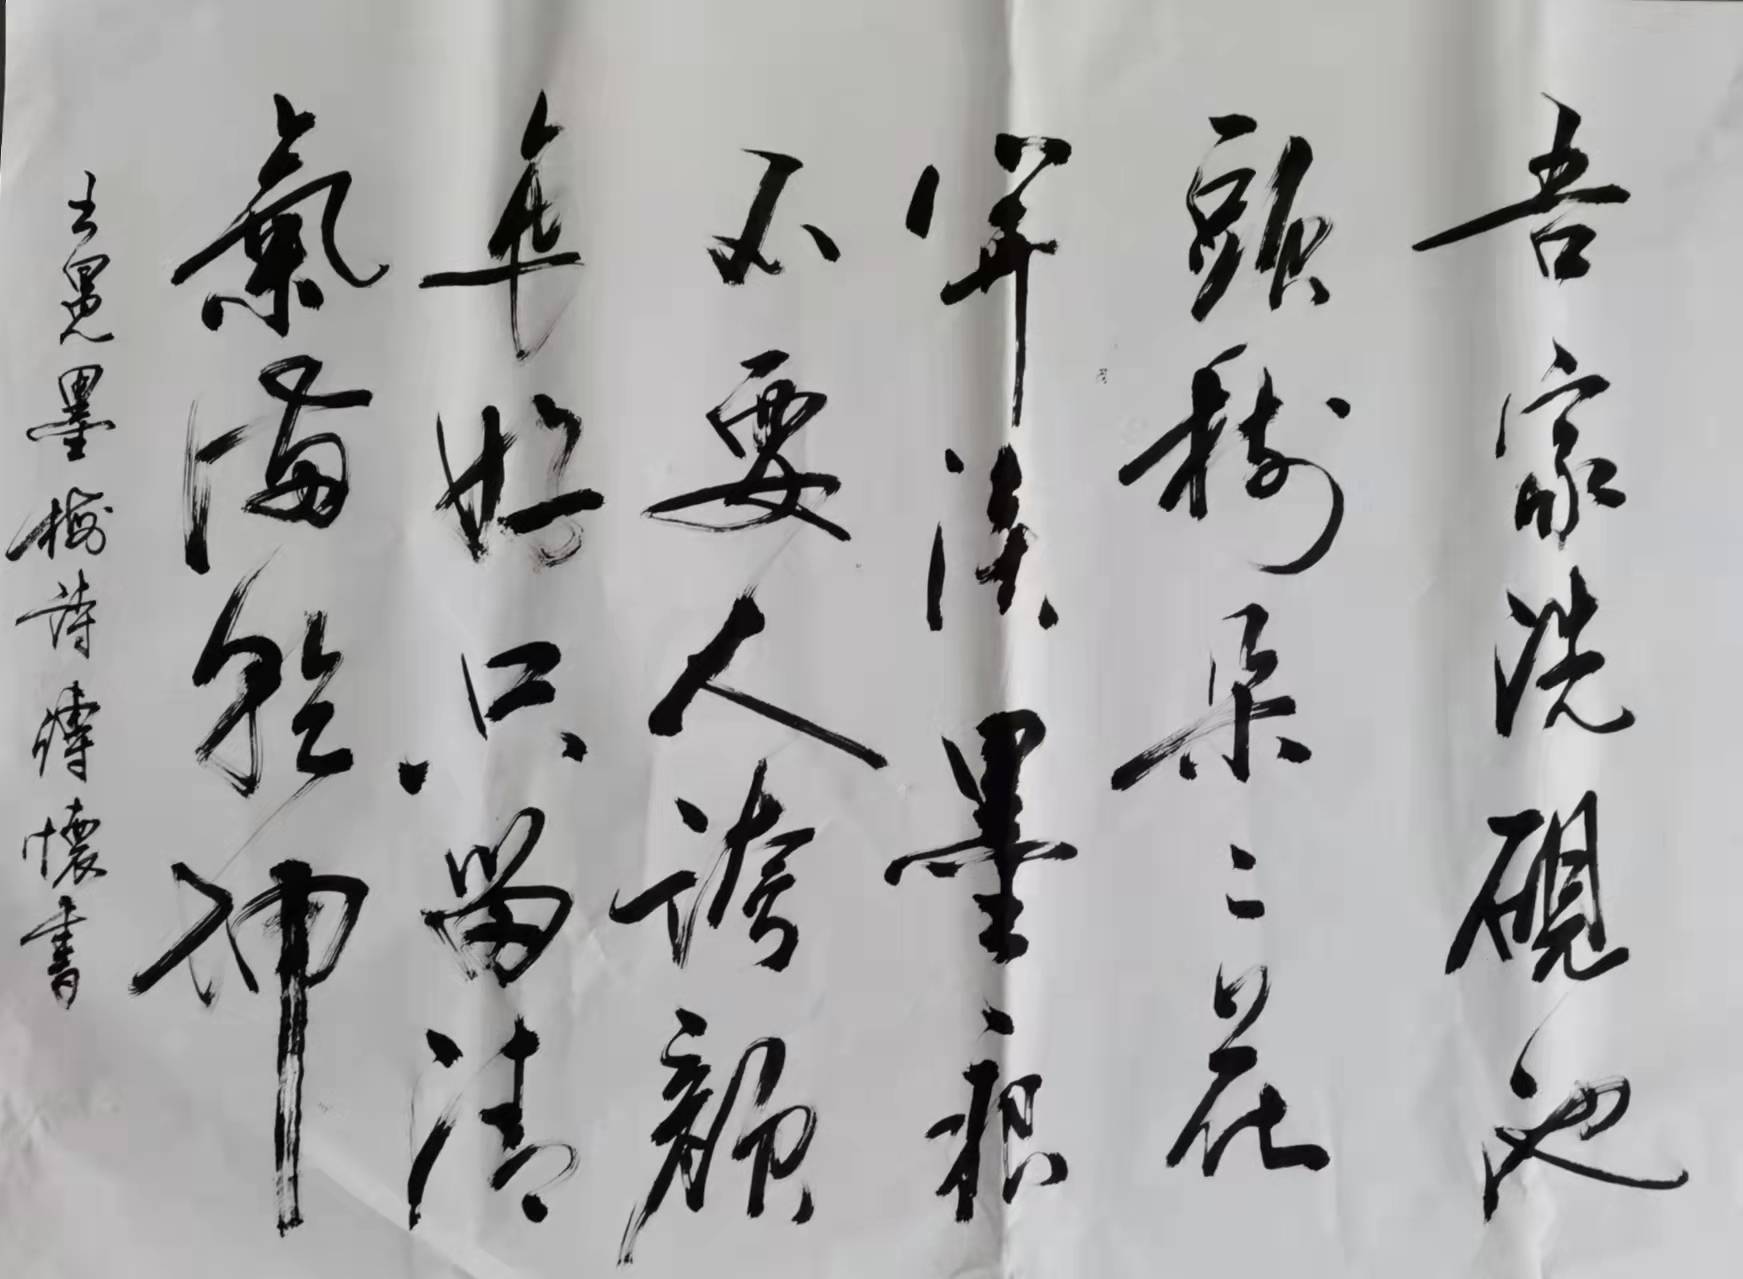 吾家洗硯池
頭樹朵々花
開淡墨痕
不要人誇顏
色好只留清
氣滿乾坤
王冕墨梅詩 懷書